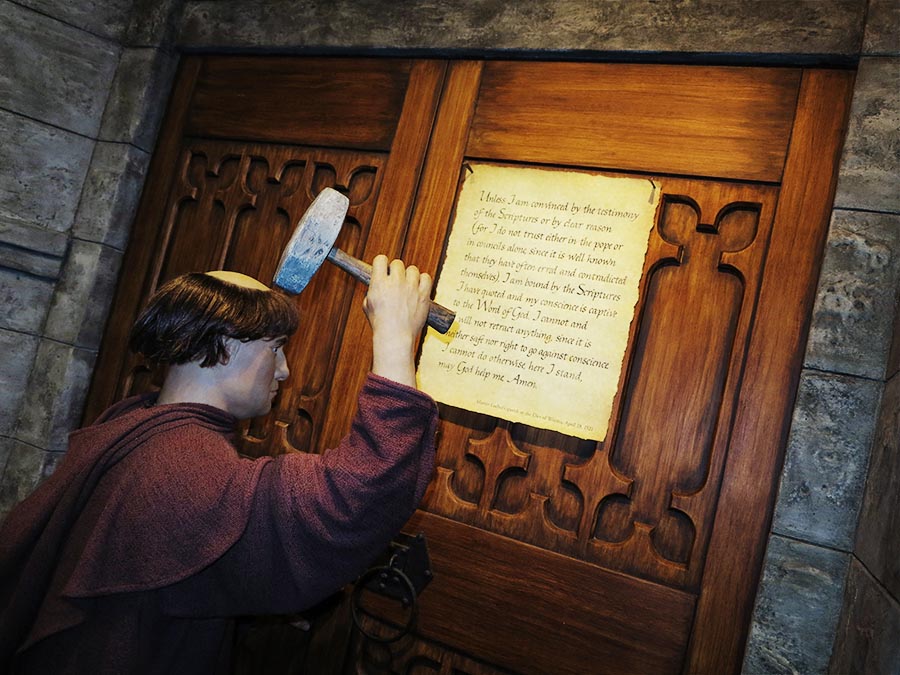 Unless I am convinced by the testimony
of the Scriptures or by clear reason
(for I do not trust either in the pope or
in councils alone, since it is well known
that they have often erred and contradicted
themselves), I am bound by the Scriptures
I have quoted and my conscience is captive
to the Word of God. I cannot and
will not retract anything, since it is
neither safe nor right to go against conscience
I cannot do otherwise, here I stand,
may God help me. Amen.
Martin Luther's speech at the Diet of Worms, April 18, 1521